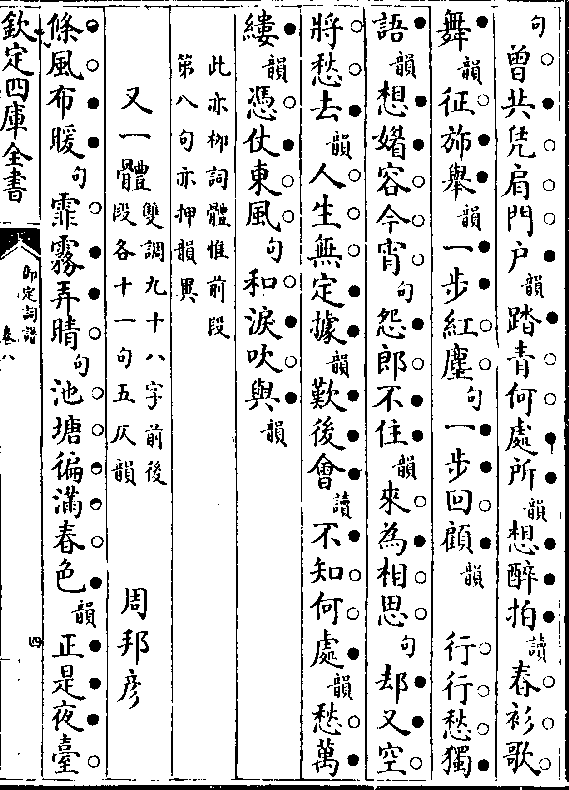 句曾共凭肩門户韻踏青何處所韻想醉拍讀春衫歌
舞韻征斾舉韻一步紅塵句一步回顧韻　行行愁獨
語韻想媚容今宵句怨郎不住韻來為相思句却又空
將愁去韻人生無定據韻歎後會讀不知何處韻愁萬
縷韻憑仗東風句和淚吹與韻
此亦柳詞體惟前段
第八句亦押韻異
又一體雙調九十八字前後
段各十一句五仄韻　周邦彦
條風布暖句霏霧弄晴句池塘徧滿春色韻正是夜臺
欽定四庫全書
御定詞譜
卷八
四